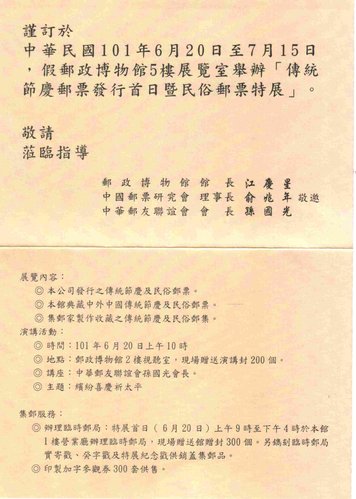 謹訂於
中華民國101年6月20日至7月15日
，假郵政博物館5樓展覽室舉辦「傳統
節慶郵票發行首日暨民俗郵票特展」。
敬請
蒞臨指導
郵政博物館館長江慶星
中國郵票研究會理事長俞兆年敬邀
中華郵友聯誼會會長孫國光
展覽內容：
◎本公司發行之傳統節慶及民俗郵票。
◎本館典藏中外中國傳統節慶及民俗郵票。
◎集郵家製作收藏之傳統節慶及民俗郵集。
演講活動：
◎時間：101年6月20日上午10時
◎地點：郵政博物館2樓視聽室，現場贈送演講封200個。
◎講座：中華郵友聯誼會孫國光會長。
◎主題：繽紛喜慶祈太平
集郵服務：
◎辦理臨時郵局：特展首日（6月20日）上午9時至下午4時於本館
1樓營業廳辦理臨時郵局，現場贈送館贈封300個。另鐫刻臨時郵局
實寄戳、癸字戳及特展紀念戳供銷蓋集郵品。
◎印製加字參觀券300套供售。